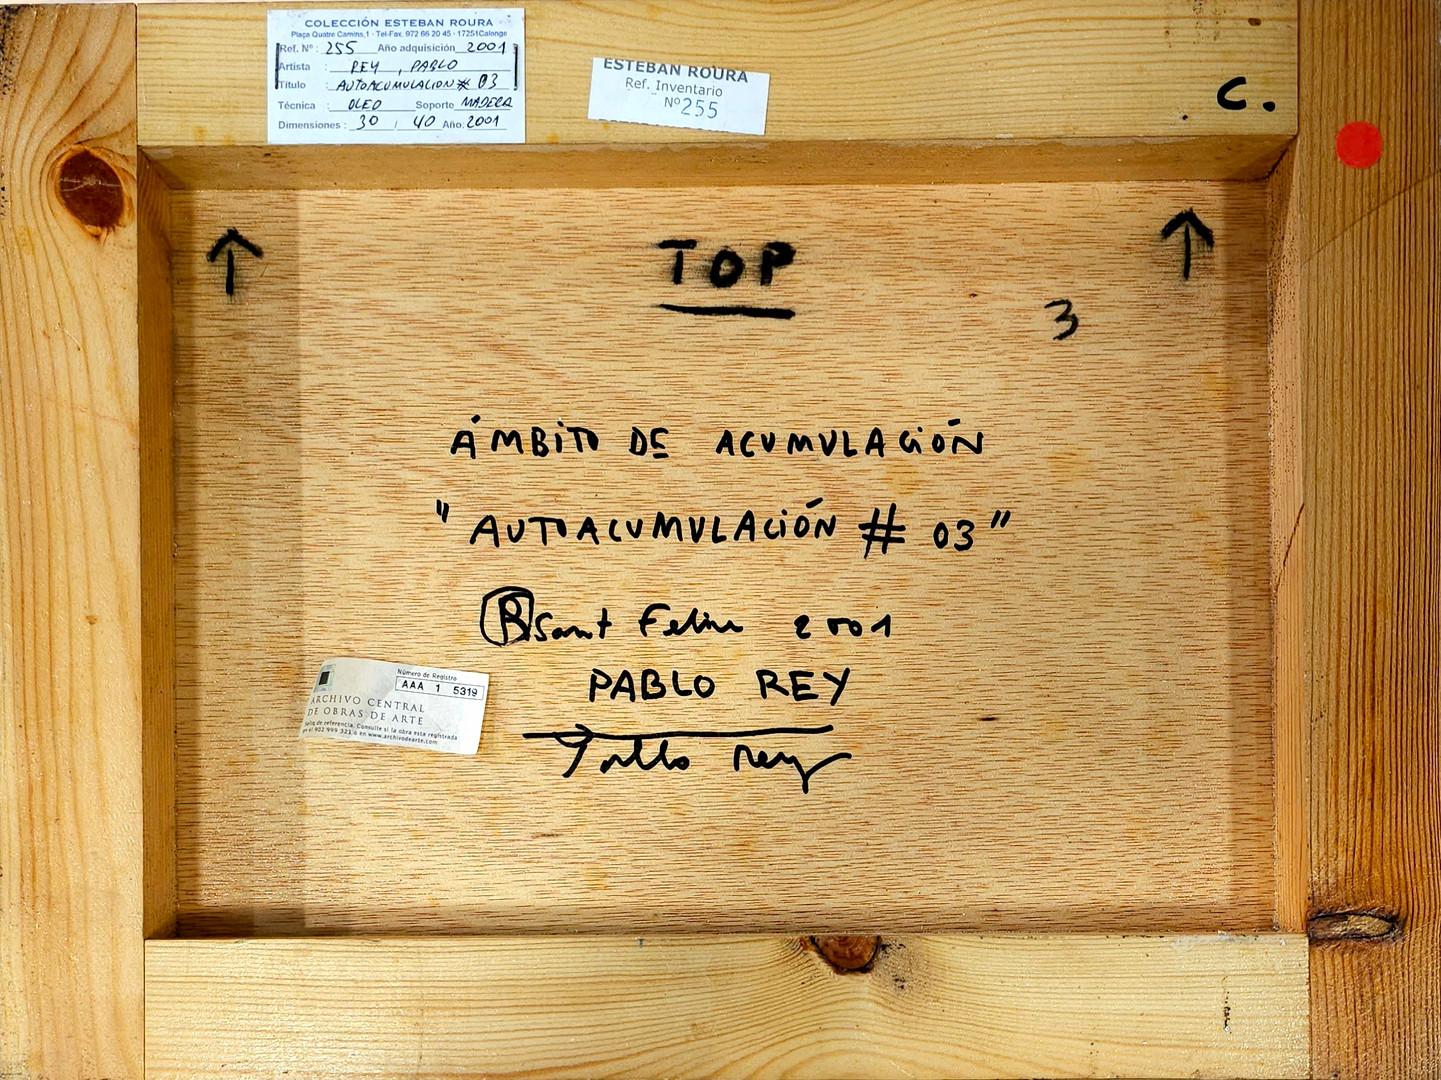 COLECCIÓN ESTEBAN ROURA
Plaça Quatre Camins,1 - Tel-Fax. 972 66 20 45 - 17251Calonge
Ref. Nº : 255 Año adquisición 2001
Artista : REY , PABLO
Título : AUTOACUMULACION # 03
Técnica : OLEO Soporte MADERA
Dimensiones : 30 / 40 Año. 2001
ESTEBAN ROURA
Ref. Inventario
Nº 255
C.
TOP
3
ÁMBITO DE ACUMULACIÓN
"AUTOACUMULACIÓN # 03"
Ⓡ Sant Feliu 2001
PABLO REY
Pablo Rey
Número de Registro
AAA 1 5319
ARCHIVO CENTRAL
DE OBRAS DE ARTE
de referencia. Consulte si la obra esta registrada
en el 902 999 321 o en www.archivodearte.com